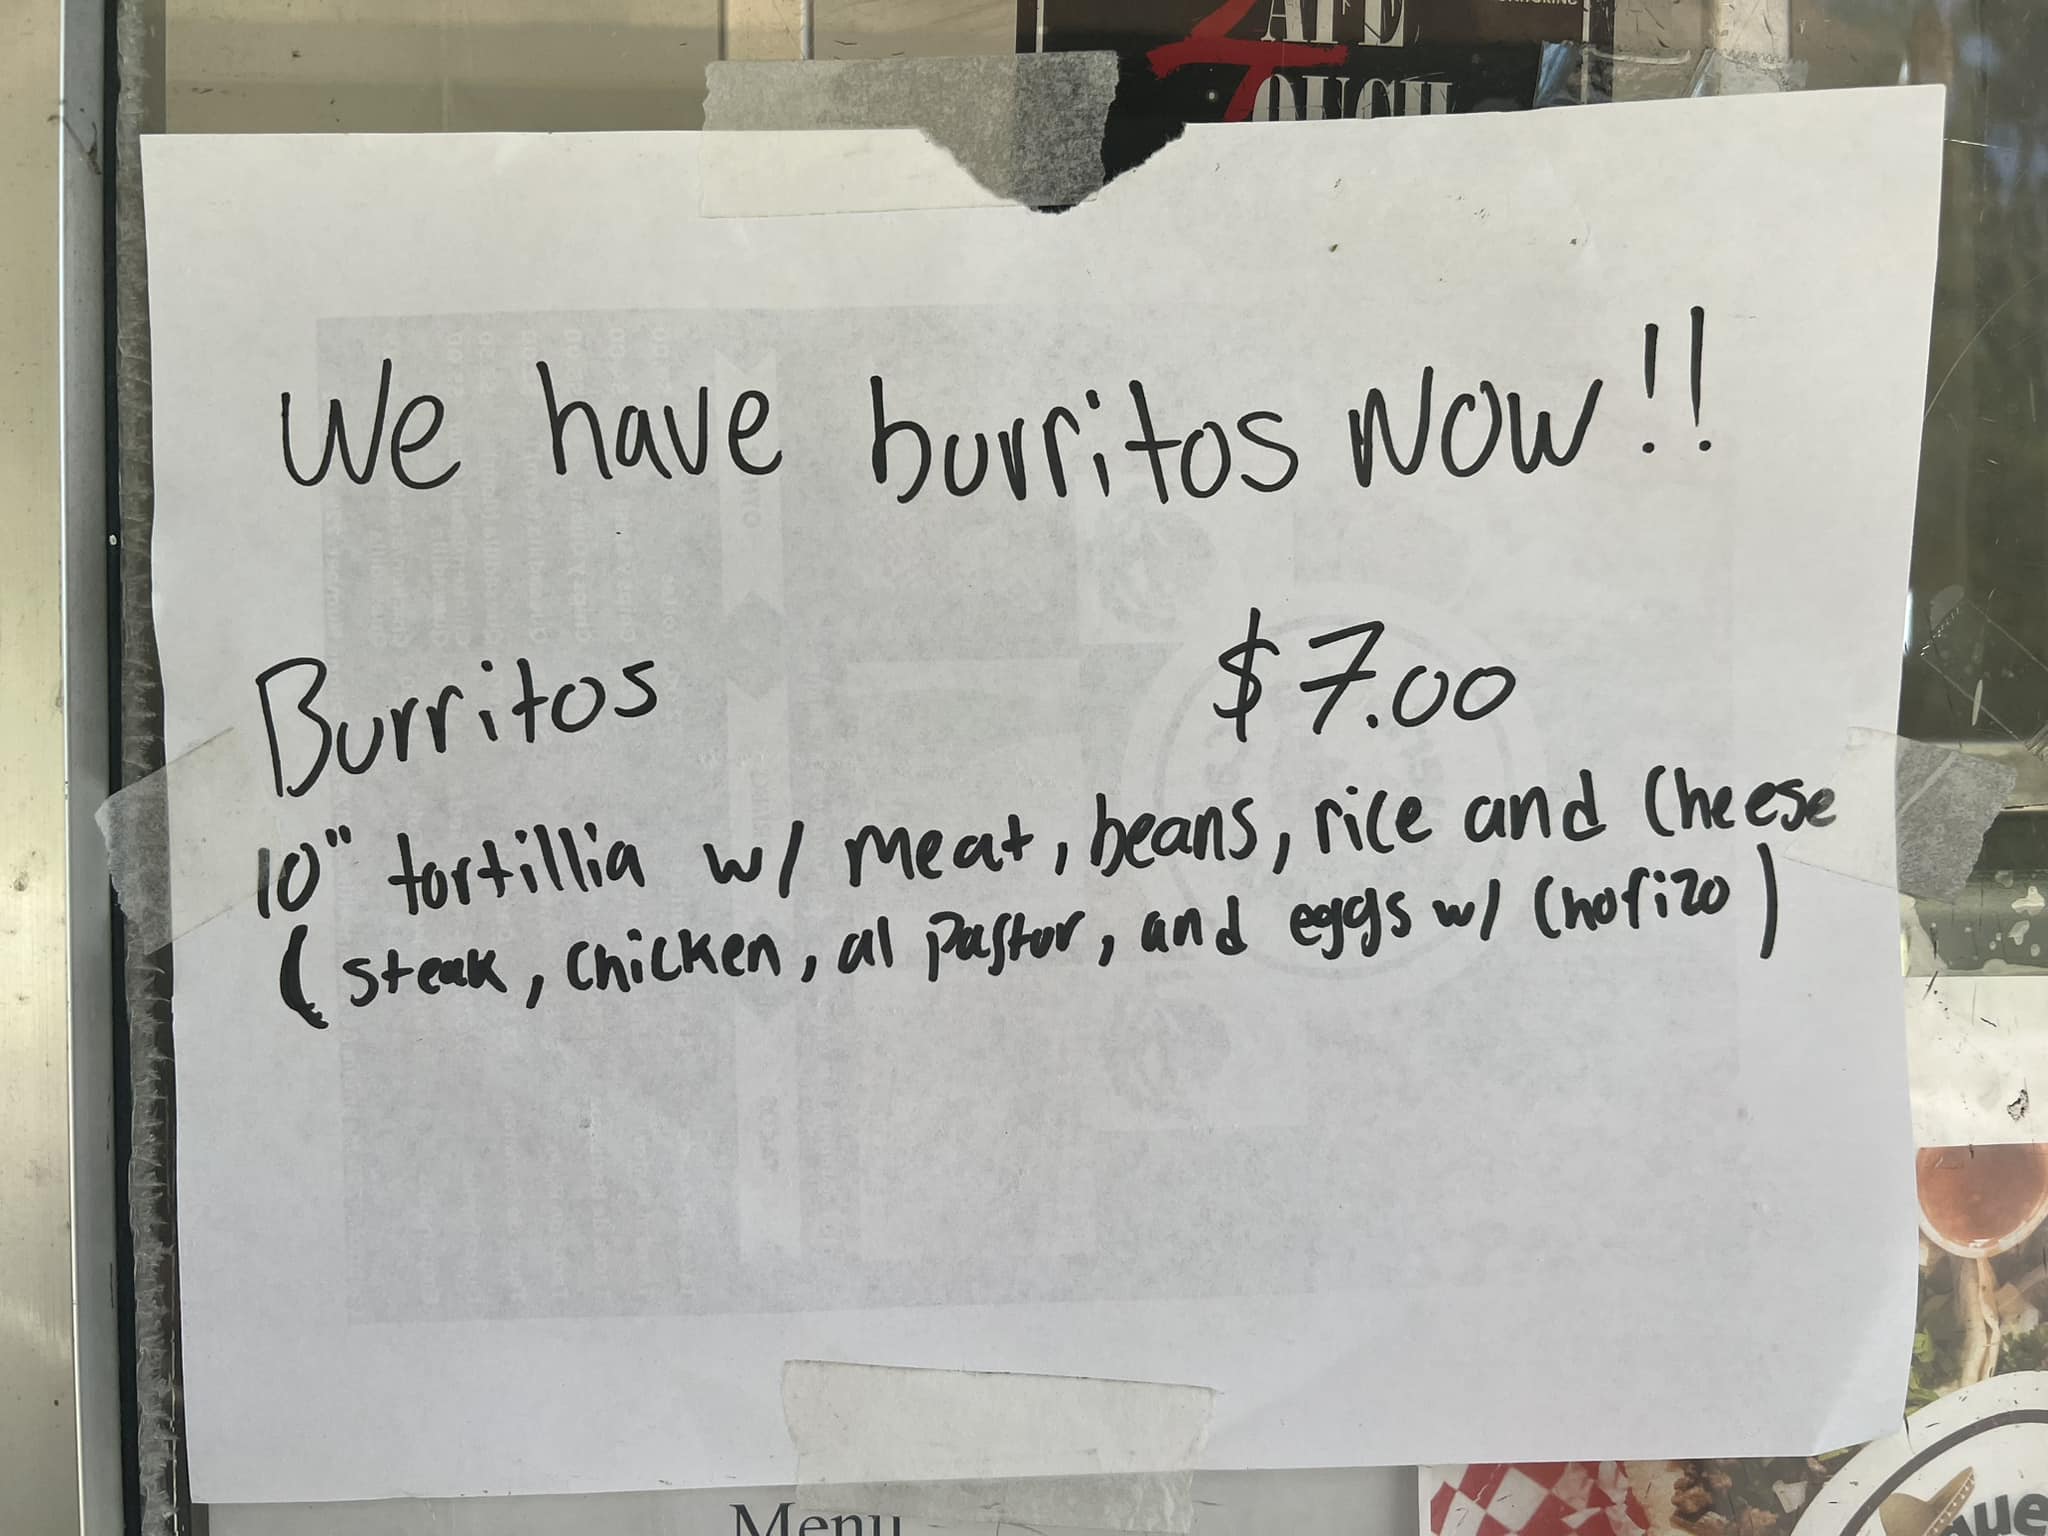 We have burritos NOW!!
Burritos $7.00
10" tortillia w/ meat, beans, rice and cheese
(steak, chicken, al pastor, and eggs w/ chorizo)
Menu